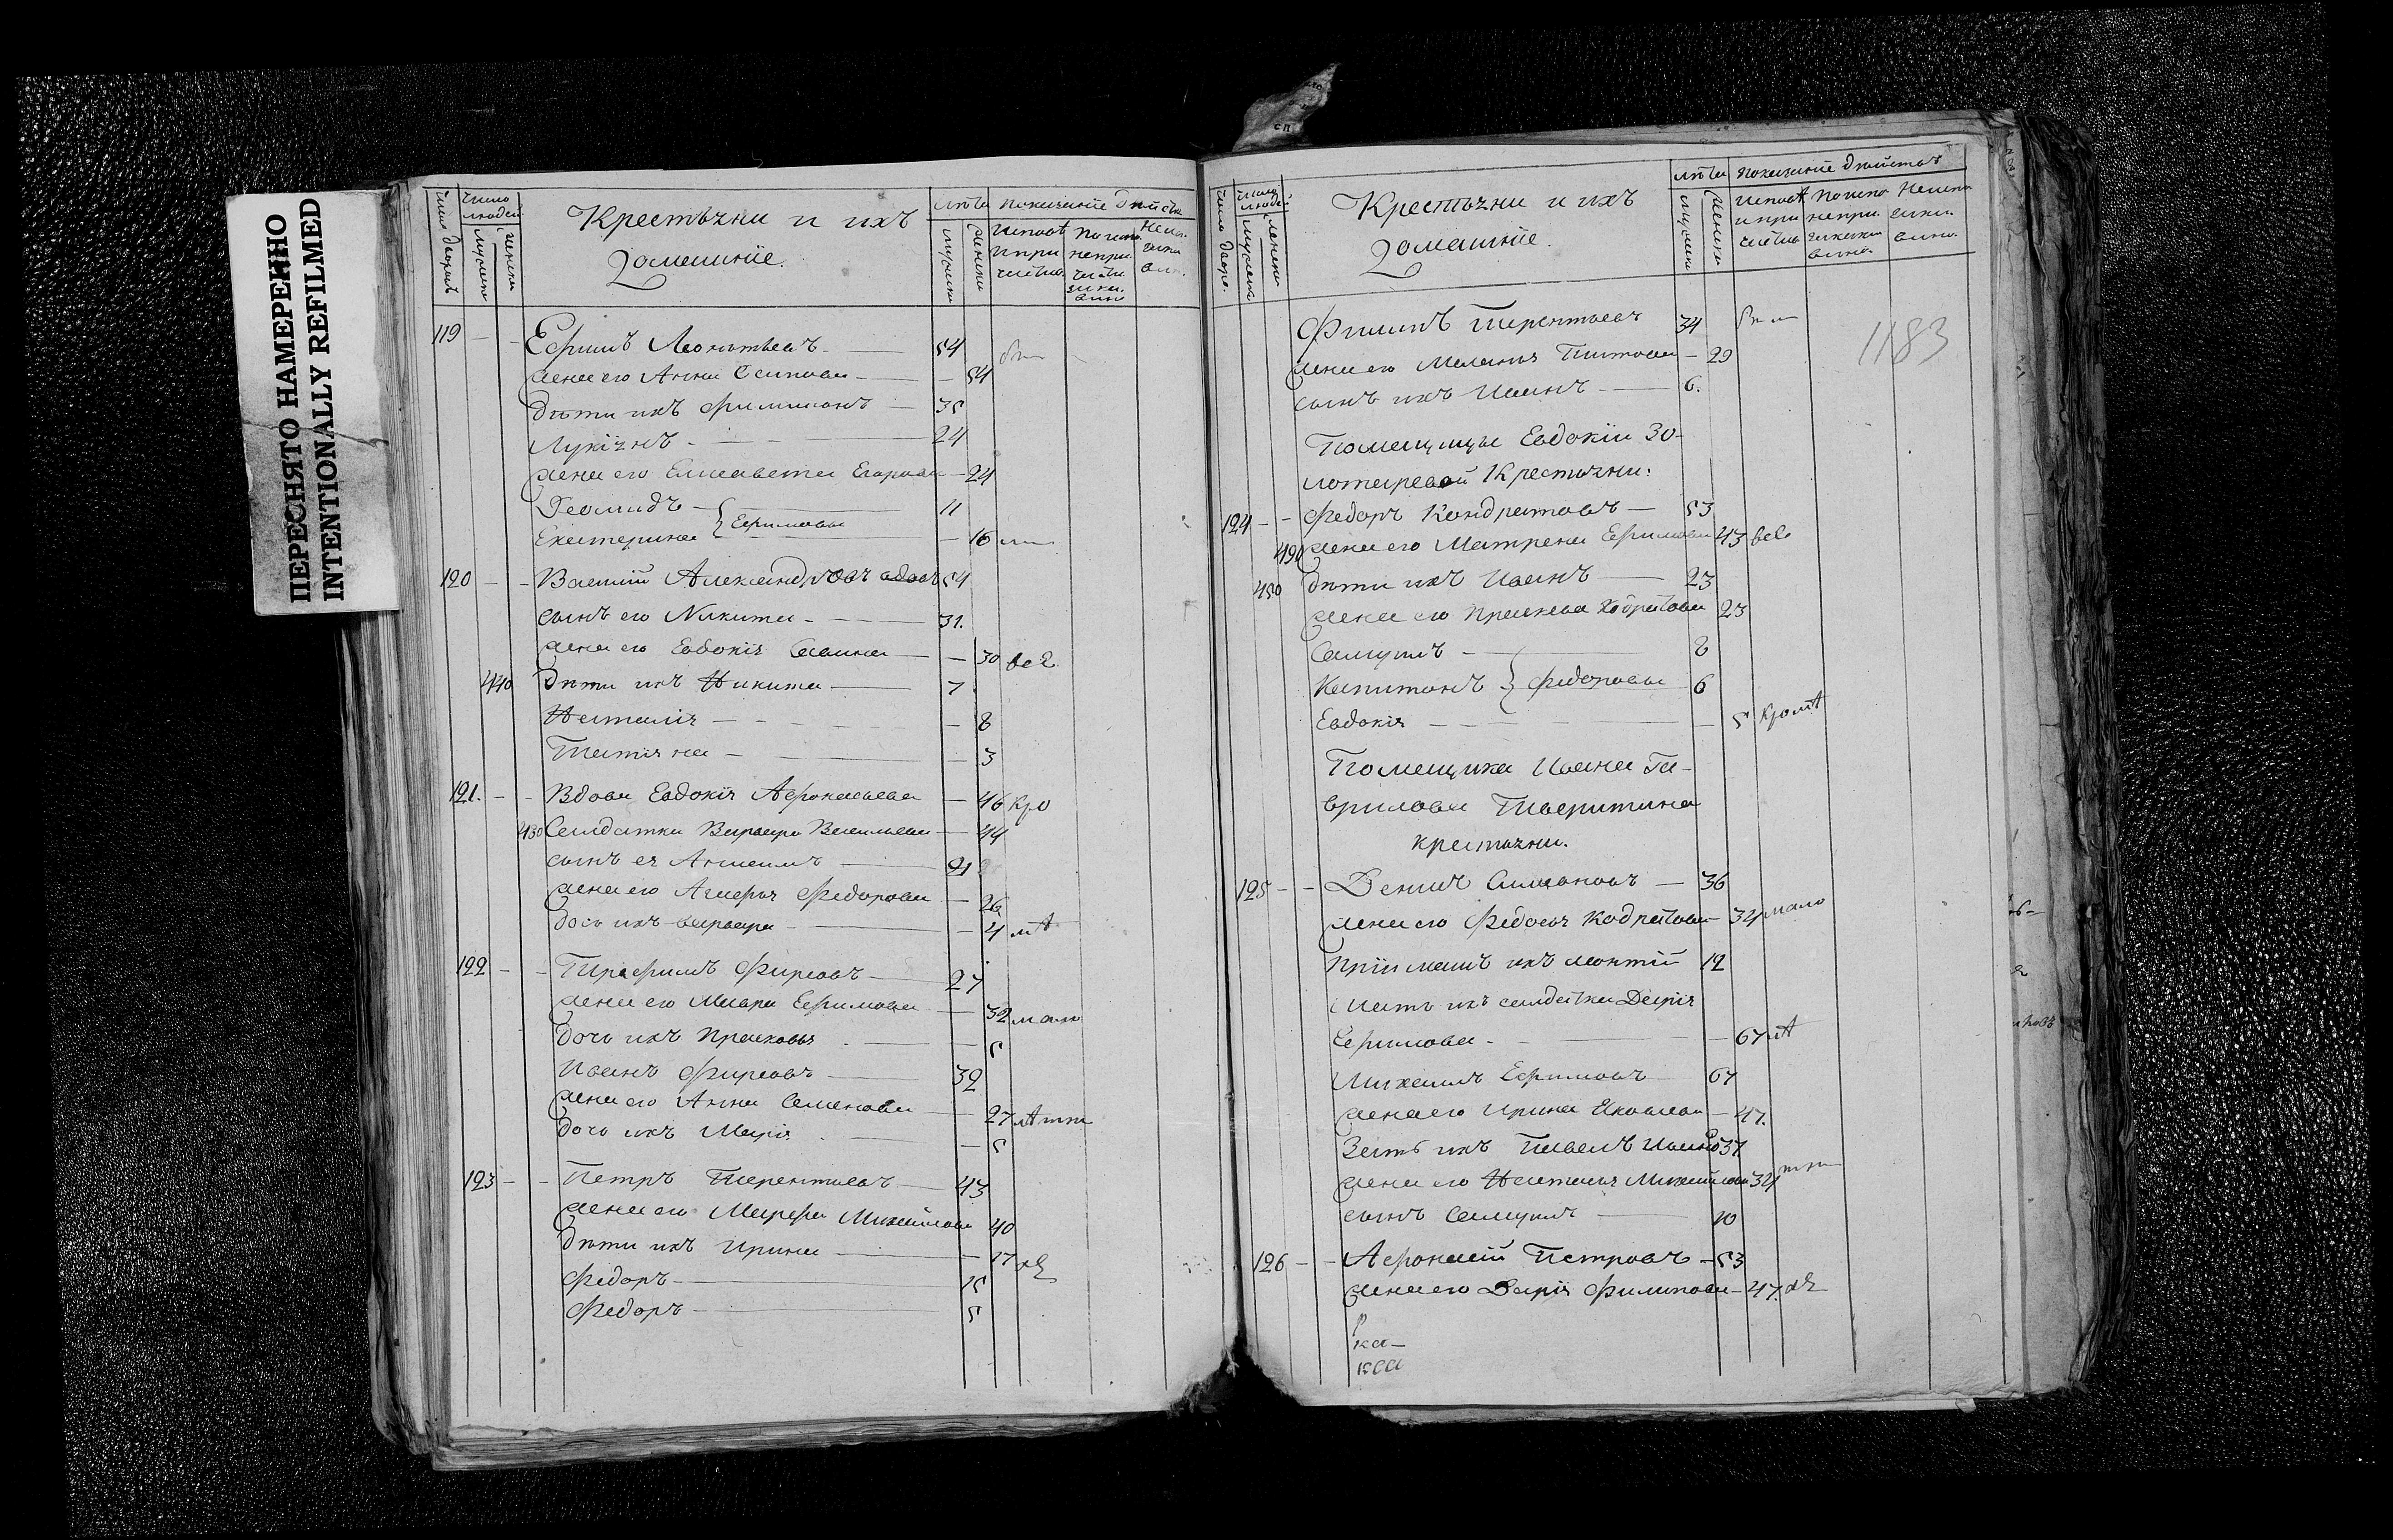 ПЕРЕСНЯТО НАМЕРЕННО
INTENTIONALLY REFILMED
Число дворовъ
Число людей
мужеска
женска
Крестьяни и ихъ
домашніе.
лѣта
мужеска
женска
119 Ефимъ Леонтьевъ 54
жена его Анна Осипова 54
дѣти ихъ Филимонъ 35
Лукіянъ 24
жена его Елисавета Егорова 24
Деомидъ 11
Ефимовы
Екатерина 16
120 Василій Александровъ вдовъ 54
сынъ его Никита 31.
жена его Евдокія Савина 30
440 дѣти ихъ Никита 7
Наталія 8
Татіяна 3
121. Вдова Евдокія Афонасьева 46 кро
430 Салдатка Варвара Васильева 44
сынъ ея Анисимъ 21
жена его Агафья Федорова 26
дочь ихъ Варвара 4
122 Трофимъ Фирсовъ 27
жена его Мавра Ефимова 32
дочь ихъ Прасковья 5
Иванъ Фирсовъ 32
жена его Анна Семенова 27
дочь ихъ Марія 5
123 Петръ Терентьевъ 43
жена его Марфа Михайлова 40
дѣти ихъ Ирина 17
Федоръ 15
Федоръ 5
Крестьяни и ихъ
домашніе.
лѣта
мужеска
женска
1183
Филипъ Терентьевъ 34
жена его Меланья Титова 29
сынъ ихъ Иванъ 6.
Помещицы Евдокіи Зо-
лотаревой Крестьяни:
124 Федоръ Кондратовъ 53
490 жена его Матрена Ефимова 43
450 дѣти ихъ Иванъ 23
жена его Прасковья 23
Самуилъ 8
Капитонъ Федоровы 6
Евдокія 5
Помещика Ивана Га-
врилова Тверитина
крестьяни.
125 Денисъ Симоновъ 36
жена его Федосья Кодратова 34
Пріимашъ ихъ Леонтій 12
Мать ихъ салдатка Дарія
Ефимова 67
Михаилъ Ефимовъ 67
жена его Ирина Яковлева 47.
Зять ихъ Павелъ 37
жена его Наталья Михайлова 34
сынъ Самуилъ 10
126 Афонасій Петровъ 53
жена его Дарія Филипова 47.